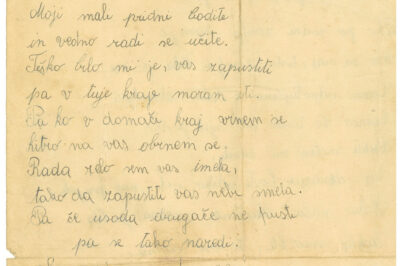 Moji mali pridni bodite
in vedno radi se učite.
Težko bilo mi je, vas zapustiti
pa v tuje kraje moram iti.
Pa ko v domači kraj vrnem se
hitro na vas obrnem se.
Rada zelo sem vas imela,
tako da zapustiti vas nebi smela.
Pa če usoda drugače ne pusti
pa se tako naredi.